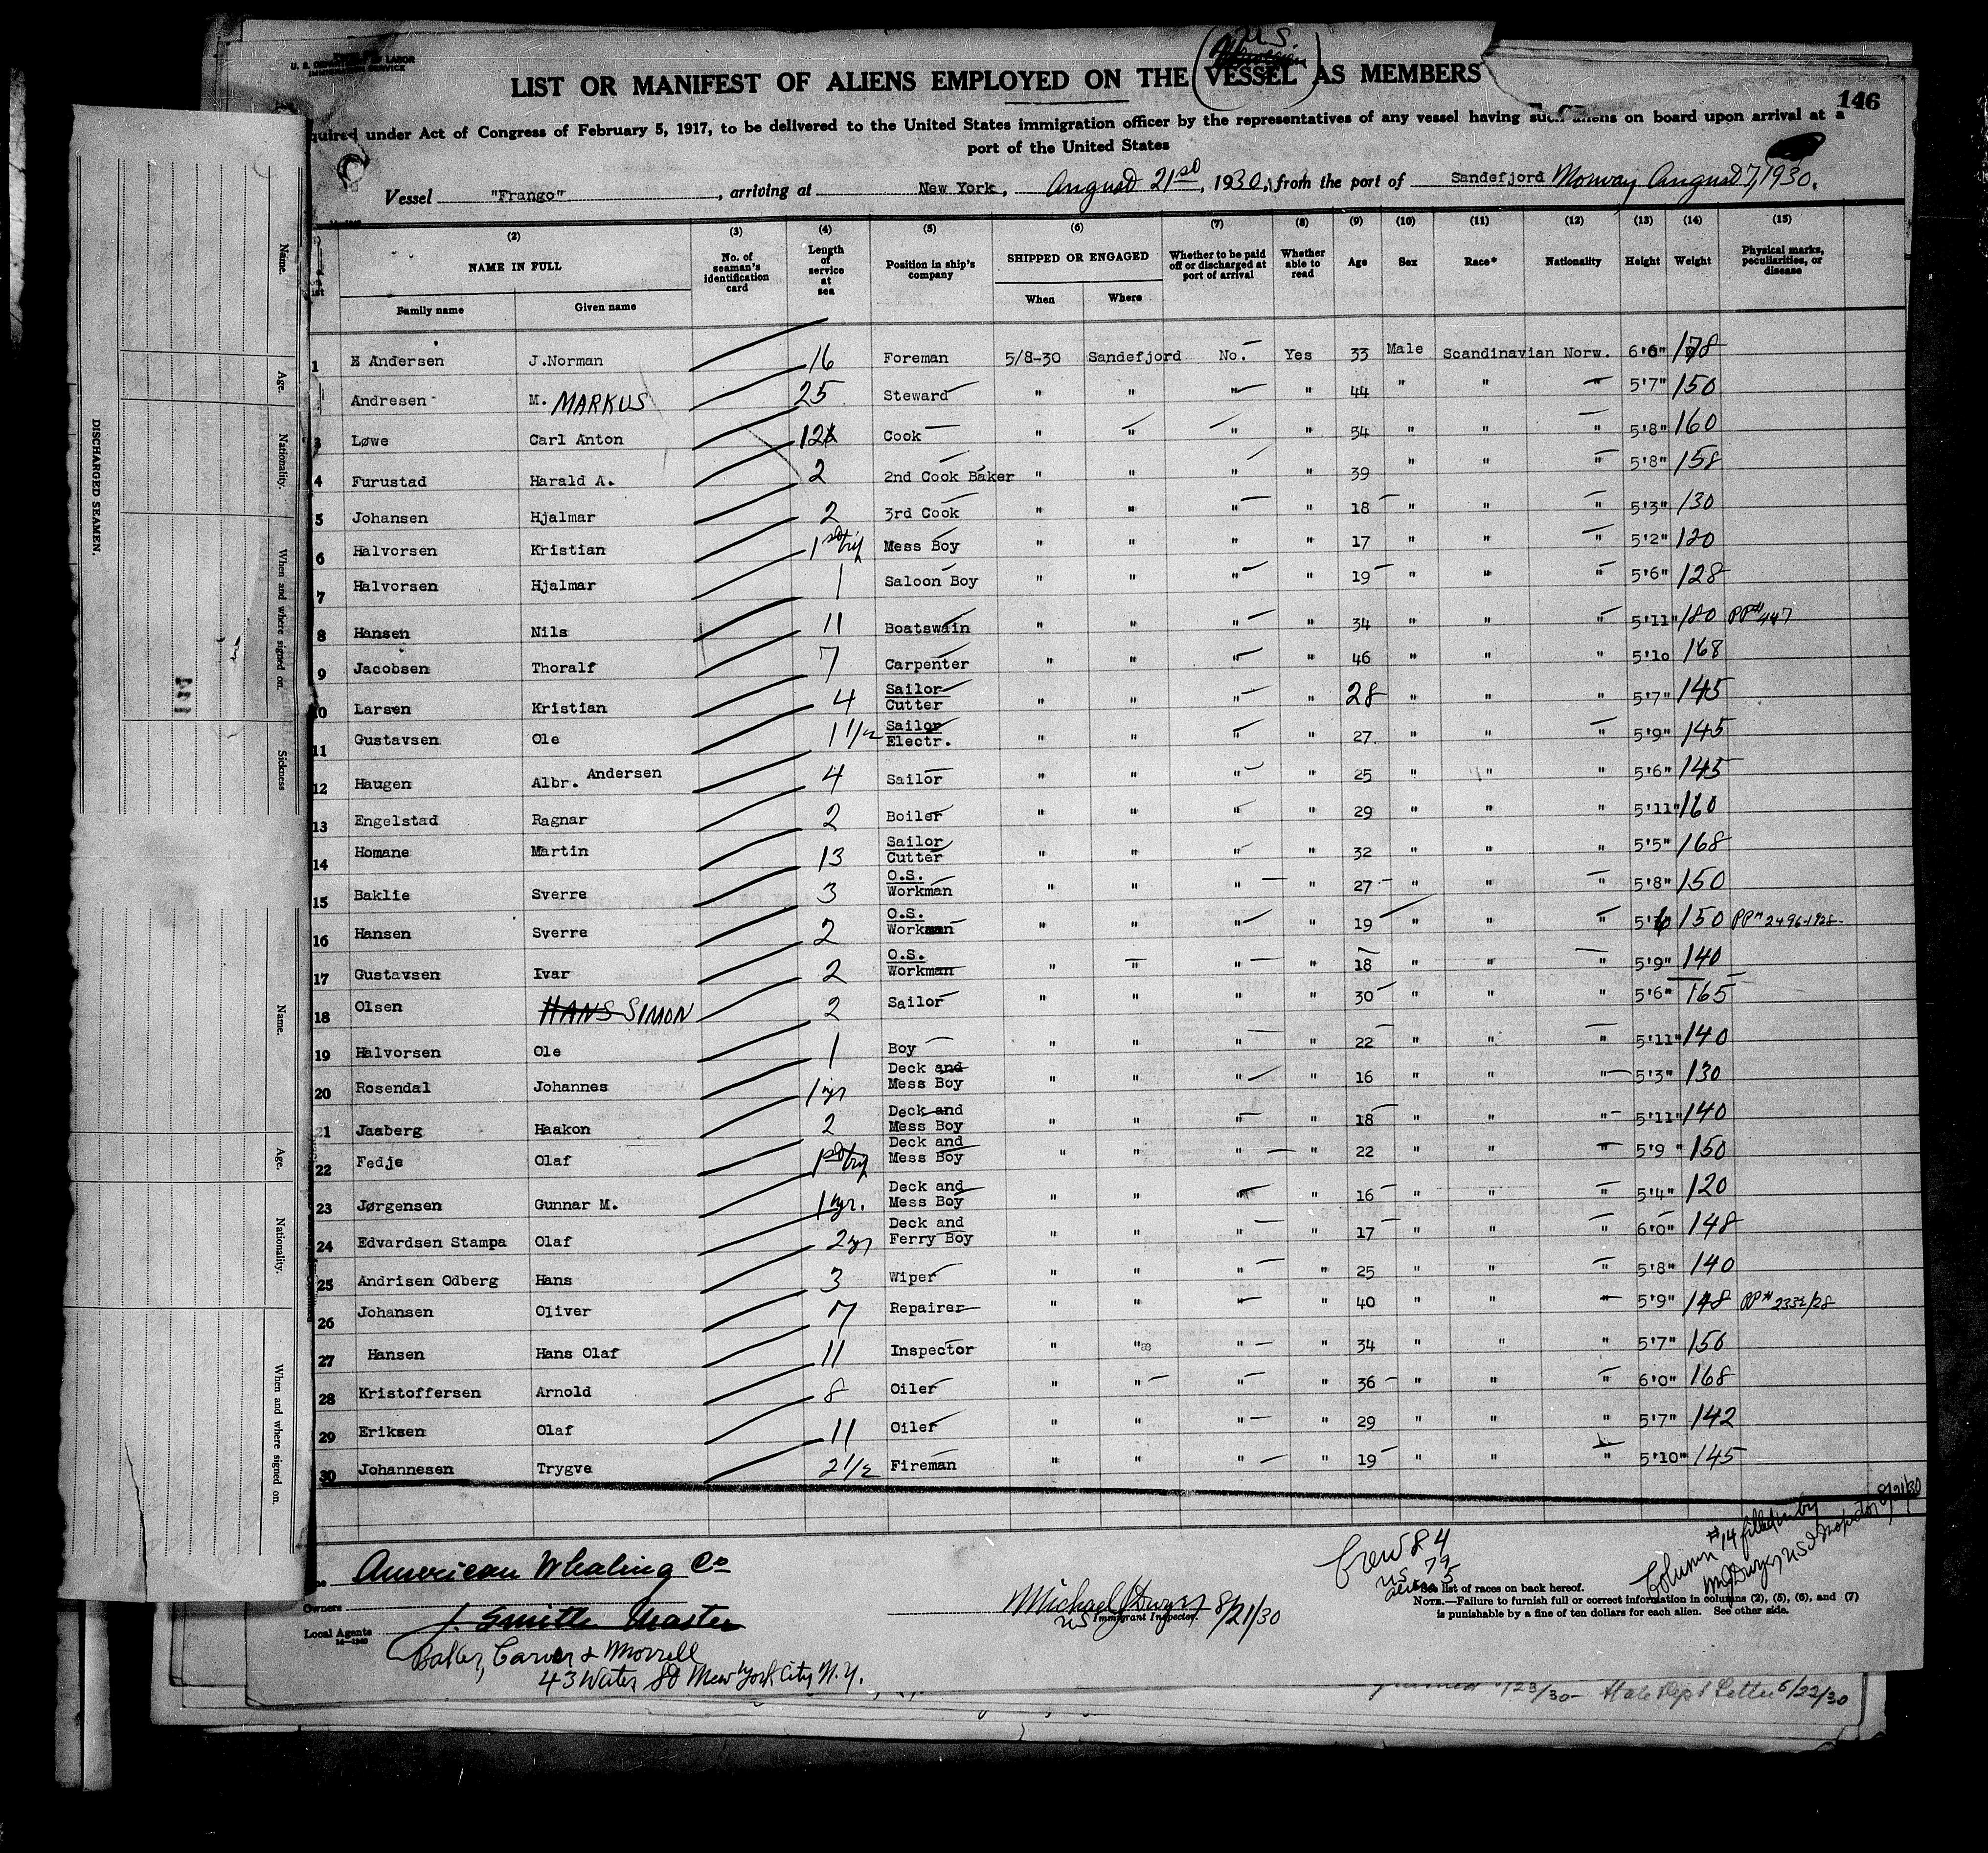 U. S. DEPARTMENT OF LABOR
IMMIGRATION SERVICE
U.S.
LIST OR MANIFEST OF ALIENS EMPLOYED ON THE VESSEL AS MEMBERS
146
quired under Act of Congress of February 5, 1917, to be delivered to the United States immigration officer by the representatives of any vessel having such aliens on board upon arrival at a
port of the United States
Vessel "Frango", arriving at New York, August 21st, 1930, from the port of Sandefjord Norway August 7, 1930.
(2) (3) (4) (5) (6) (7) (8) (9) (10) (11) (12) (13) (14) (15)
NAME IN FULL
Family name Given name
No. of seaman's identification card
Length of service at sea
Position in ship's company
SHIPPED OR ENGAGED
When Where
Whether to be paid off or discharged at port of arrival
Whether able to read
Age Sex Race* Nationality Height Weight
Physical marks, peculiarities, or disease
1 E Andersen J.Norman 16 Foreman 5/8-30 Sandefjord No. Yes 33 Male Scandinavian Norw. 6'0" 178
Andresen M. MARKUS 25 Steward " " " " 44 " " " 5'7" 150
3 Løwe Carl Anton 12 Cook " " " " 34 " " " 5'8" 160
4 Furustad Harald A. 2 2nd Cook Baker " " " " 39 " " " 5'8" 158
5 Johansen Hjalmar 2 3rd Cook " " " " 18 " " " 5'3" 130
6 Halvorsen Kristian 1st trip Mess Boy " " " " 17 " " " 5'2" 120
7 Halvorsen Hjalmar 1 Saloon Boy " " " " 19 " " " 5'6" 128
8 Hansen Nils 11 Boatswain " " " " 34 " " " 5'11" 180 PP# 447
9 Jacobsen Thoralf 7 Carpenter " " " " 46 " " " 5'10 168
10 Larsen Kristian 4 Sailor Cutter " " " " 28 " " " 5'7" 145
11 Gustavsen Ole 1 1/2 Sailor Electr. " " " " 27 " " " 5'9" 145
12 Haugen Albr. Andersen 4 Sailor " " " " 25 " " " 5'6" 145
13 Engelstad Ragnar 2 Boiler " " " " 29 " " " 5'11" 160
14 Homane Martin 13 Sailor Cutter " " " " 32 " " " 5'5" 168
15 Baklie Sverre 3 O.S. Workman " " " " 27 " " " 5'8" 150
16 Hansen Sverre 2 O.S. Workman " " " " 19 " " " 5'6 150 PP# 2496-1928-
17 Gustavsen Ivar 2 O.S. Workman " " " " 18 " " " 5'9" 140
18 Olsen HANS SIMON 2 Sailor " " " " 30 " " " 5'6" 165
19 Halvorsen Ole 1 Boy " " " " 22 " " " 5'11" 140
20 Rosendal Johannes 1 yr Deck and Mess Boy " " " " 16 " " " 5'3" 130
21 Jaaberg Haakon 2 Deck and Mess Boy " " " " 18 " " " 5'11" 140
22 Fedje Olaf 1st trip Deck and Mess Boy " " " " 22 " " " 5'9 " 150
23 Jørgensen Gunnar M. 1 yr. Deck and Mess Boy " " " " 16 " " " 5'4" 120
24 Edvardsen Stampa Olaf 2 yr Deck and Ferry Boy " " " " 17 " " " 6'0" 148
25 Andrisen Odberg Hans 3 Wiper " " " " 25 " " " 5'8" 140
26 Johansen Oliver 7 Repairer " " " " 40 " " " 5'9" 148 PP# 2332/28
27 Hansen Hans Olaf 11 Inspector " " " " 34 " " " 5'7" 150
28 Kristoffersen Arnold 8 Oiler " " " " 36 " " " 6'0" 168
29 Eriksen Olaf 11 Oiler " " " " 29 " " " 5'7" 142
30 Johannesen Trygve 2 1/2 Fireman " " " " 19 " " " 5'10" 145
American Whaling Co
Owners
J. Smith Master
Local Agents
14—1240
Baker, Carver & Morrell
43 Water St New York City N.Y.
Michael J Dwyer 8/21/30
US Immigrant Inspector.
Crew 84
US 5
aliens 79
Column #14 filled in by
M J Dwyer US Inspector 8/21/30
*See list of races on back hereof.
NOTE.—Failure to furnish full or correct information in columns (2), (5), (6), and (7)
is punishable by a fine of ten dollars for each alien. See other side.
/23/30- State Dept Letter 5/22/30
DISCHARGED SEAMEN.
Name. Age. Nationality. When and where signed on. Sickness
Name. Age. Nationality. When and where signed on.